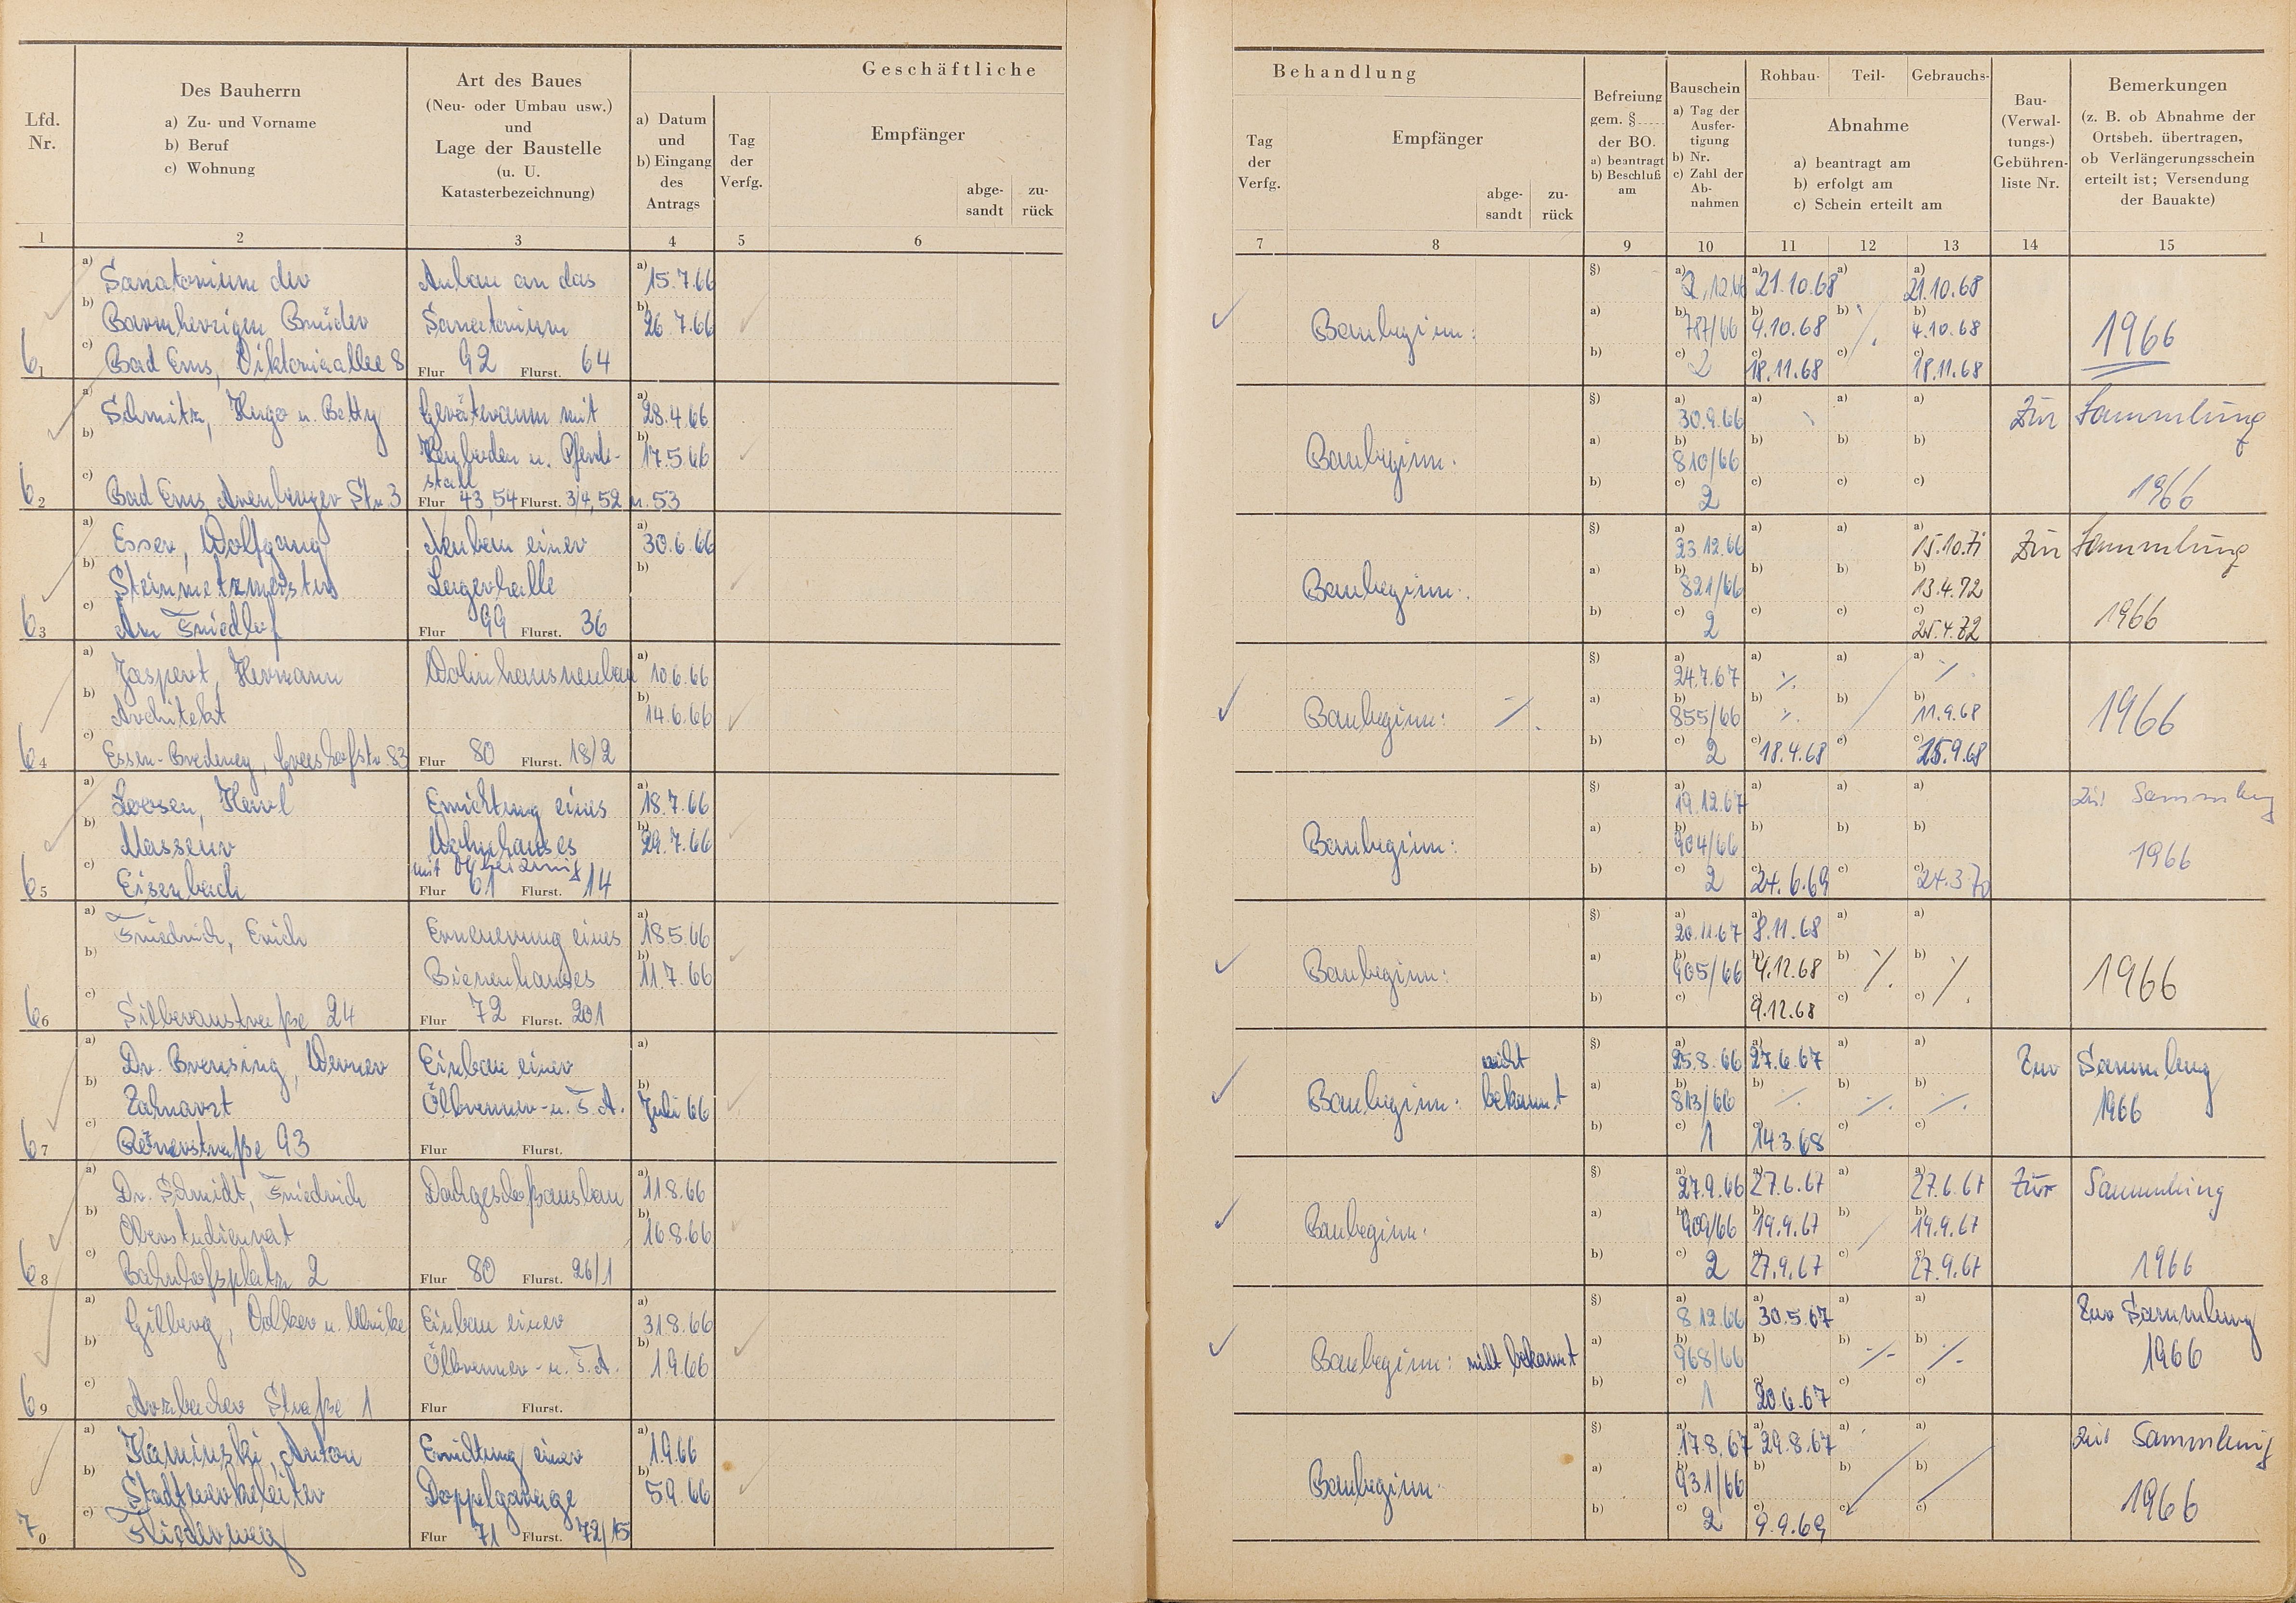 Geschäftliche
Lfd. Nr.
Des Bauherrn
a) Zu- und Vorname
b) Beruf
c) Wohnung
Art des Baues
(Neu- oder Umbau usw.)
und
Lage der Baustelle
(u. U.
Katasterbezeichnung)
a) Datum
und
b) Eingang
des
Antrags
Tag
der
Verfg.
Empfänger
abge-
sandt
zu-
rück
1 2 3 4 5 6
61
a) Sanatorium der
b) Barmherzigen Brüder
c) Bad Ems, Viktoriaallee 8
Anbau an das
Sanatorium
Flur 92 Flurst. 64
a) 15.7.66
b) 26.7.66
62
a) Schmitz, Hugo u. Betty
b)
c) Bad Ems, Arenberger Str. 3
Geräteraum mit
Heuboden u. Pferde-
stall
Flur 43,54 Flurst. 3/4, 52 u. 53
a) 28.4.66
b) 17.5.66
63
a) Esser, Wolfgang
b) Steinmetzmeister
c) Am Friedhof
Neubau einer
Lagerhalle
Flur 99 Flurst. 36
a) 30.6.66
b)
64
a) Jaspert, Hermann
b) Architekt
c) Essen-Bredeney
Wohnhausneubau
Flur 80 Flurst. 18/2
a) 10.6.66
b) 14.6.66
65
a) Loosen, Karl
b) Masseur
c) Eisenbach
Errichtung eines
Wohnhauses
mit Ölheizung
Flur 61 Flurst. 14
a) 18.7.66
b) 29.7.66
66
a) Friedrich, Erich
b)
c) Silberaustraße 24
Erneuerung eines
Bienenhauses
Flur 72 Flurst. 201
a) 18.5.66
b) 11.7.66
67
a) Dr. Brensing, Werner
b) Zahnarzt
c) Römerstraße 93
Einbau einer
Ölbrenner- u. F. A.
Flur Flurst.
a)
b) Juli 66
68
a) Dr. Schmidt, Friedrich
b) Oberstudienrat
c) Bahnhofsplatz 2
Dachgeschoßausbau
Flur 80 Flurst. 26/1
a) 11.8.66
b) 16.8.66
69
a) Gilberg, Volker u. Ulrike
b)
c) Arzbacher Straße 1
Einbau einer
Ölbrenner- u. F. A.
Flur Flurst.
a) 31.8.66
b) 1.9.66
70
a) Kaminski, Anton
b) Stadtwerkeleiter
c) Fliederweg
Errichtung einer
Doppelgarage
Flur 71 Flurst. 72/15
a) 1.9.66
b) 5.9.66
Behandlung
Tag
der
Verfg.
Empfänger
abge-
sandt
zu-
rück
Befreiung
gem. §
der BO.
a) beantragt
b) Beschluß
am
Bauschein
a) Tag der
Ausfer-
tigung
b) Nr.
c) Zahl der
Ab-
nahmen
Rohbau- Teil- Gebrauchs-
Abnahme
a) beantragt am
b) erfolgt am
c) Schein erteilt am
Bau-
(Verwal-
tungs-)
Gebühren-
liste Nr.
Bemerkungen
(z. B. ob Abnahme der
Ortsbeh. übertragen,
ob Verlängerungsschein
erteilt ist; Versendung
der Bauakte)
7 8 9 10 11 12 13 14 15
Baubeginn:
§) a) 2.12.66 a) 21.10.68 a) a) 21.10.68
a) b) 787/66 b) 4.10.68 b) ·/. b) 4.10.68
b) c) 2 c) 18.11.68 c) c) 18.11.68
1966
Baubeginn:
§) a) 30.9.66 a) a) a) Zur Sammlung
a) b) 810/66 b) b) b)
b) c) 2 c) c) c) 1966
Baubeginn:
§) a) 23.12.66 a) a) a) 15.10.71 Zur Sammlung
a) b) 821/66 b) b) b) 13.4.72
b) c) 2 c) c) c) 25.4.72 1966
Baubeginn: ·/.
§) a) 24.7.67 a) ·/. a) a) ·/.
a) b) 855/66 b) ·/. b) b) 11.9.68 1966
b) c) 2 c) 18.4.68 c) c) 25.9.68
Baubeginn:
§) a) 19.12.67 a) a) a) zur Sammlung
a) b) 904/66 b) b) b) 1966
b) c) 2 c) 24.6.69 c) c) 24.3.70
Baubeginn:
§) a) 20.11.67 a) 8.11.68 a) a)
a) b) 905/66 b) 4.12.68 b) ·/. b) ·/. 1966
b) c) c) 9.12.68 c) c)
Baubeginn: nicht bekannt
§) a) 25.8.66 a) 27.6.67 a) a) Zur Sammlung
a) b) 813/66 b) ·/. b) ·/. b) ·/. 1966
b) c) 1 c) 14.3.68 c) c)
Baubeginn:
§) a) 27.9.66 a) 27.6.67 a) a) 27.6.67 Zur Sammlung
a) b) 909/66 b) 19.9.67 b) b) 19.9.67
b) c) 2 c) 27.9.67 c) c) 27.9.67 1966
Baubeginn: nicht bekannt
§) a) 8.12.66 a) 30.5.67 a) a) Zur Sammlung
a) b) 968/66 b) b) ·/. b) ·/. 1966
b) c) 1 c) 20.6.67 c) c)
Baubeginn:
§) a) 17.8.67 a) 29.8.67 a) a) zur Sammlung
a) b) 931/66 b) b) b)
b) c) 2 c) 9.9.69 c) c) 1966